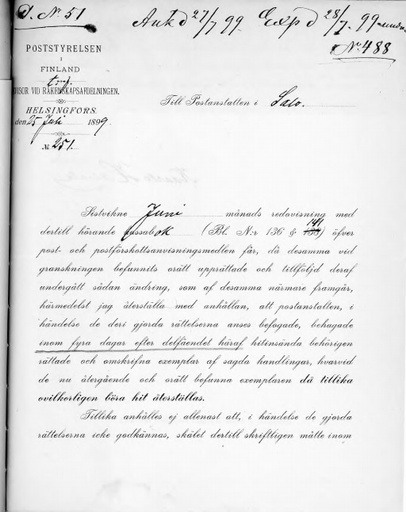 D. No 51 Ank d 27/7 99. Exp d 28/7. 99
No 488
POSTSTYRELSEN
I
FINLAND
REVISOR VID RÄKENSKAPSAFDELNINGEN.
HELSINGFORS.
den 25 Juli 1899.
№ 251.
Till Postanstalten i Salo.
Sistvikne Juni månads redovisning med
dertill hörande kassabok (Bl. N:r 136 & 141) öfver
post- och postförskottsanvisningsmedlen får, då desamma vid
granskningen befunnits orätt upprättade och tillföljd deraf
undergått sådan ändring, som af desamma närmare framgår,
härmedelst jag återställa med anhållan, att postanstalten, i
händelse de deri gjorda rättelserna anses befogade, behagade
inom fyra dagar efter delfåendet häraf hitinsända behörigen
rättade och omskrifna exemplar af sagda handlingar, hvarvid
de nu återgående och orätt befunna exemplaren då tillika
ovilkorligen böra hit återställas.
Tillika anhålles ej allenast att, i händelse de gjorda
rättelserna icke godkännas, skälet dertill skriftligen måtte inom